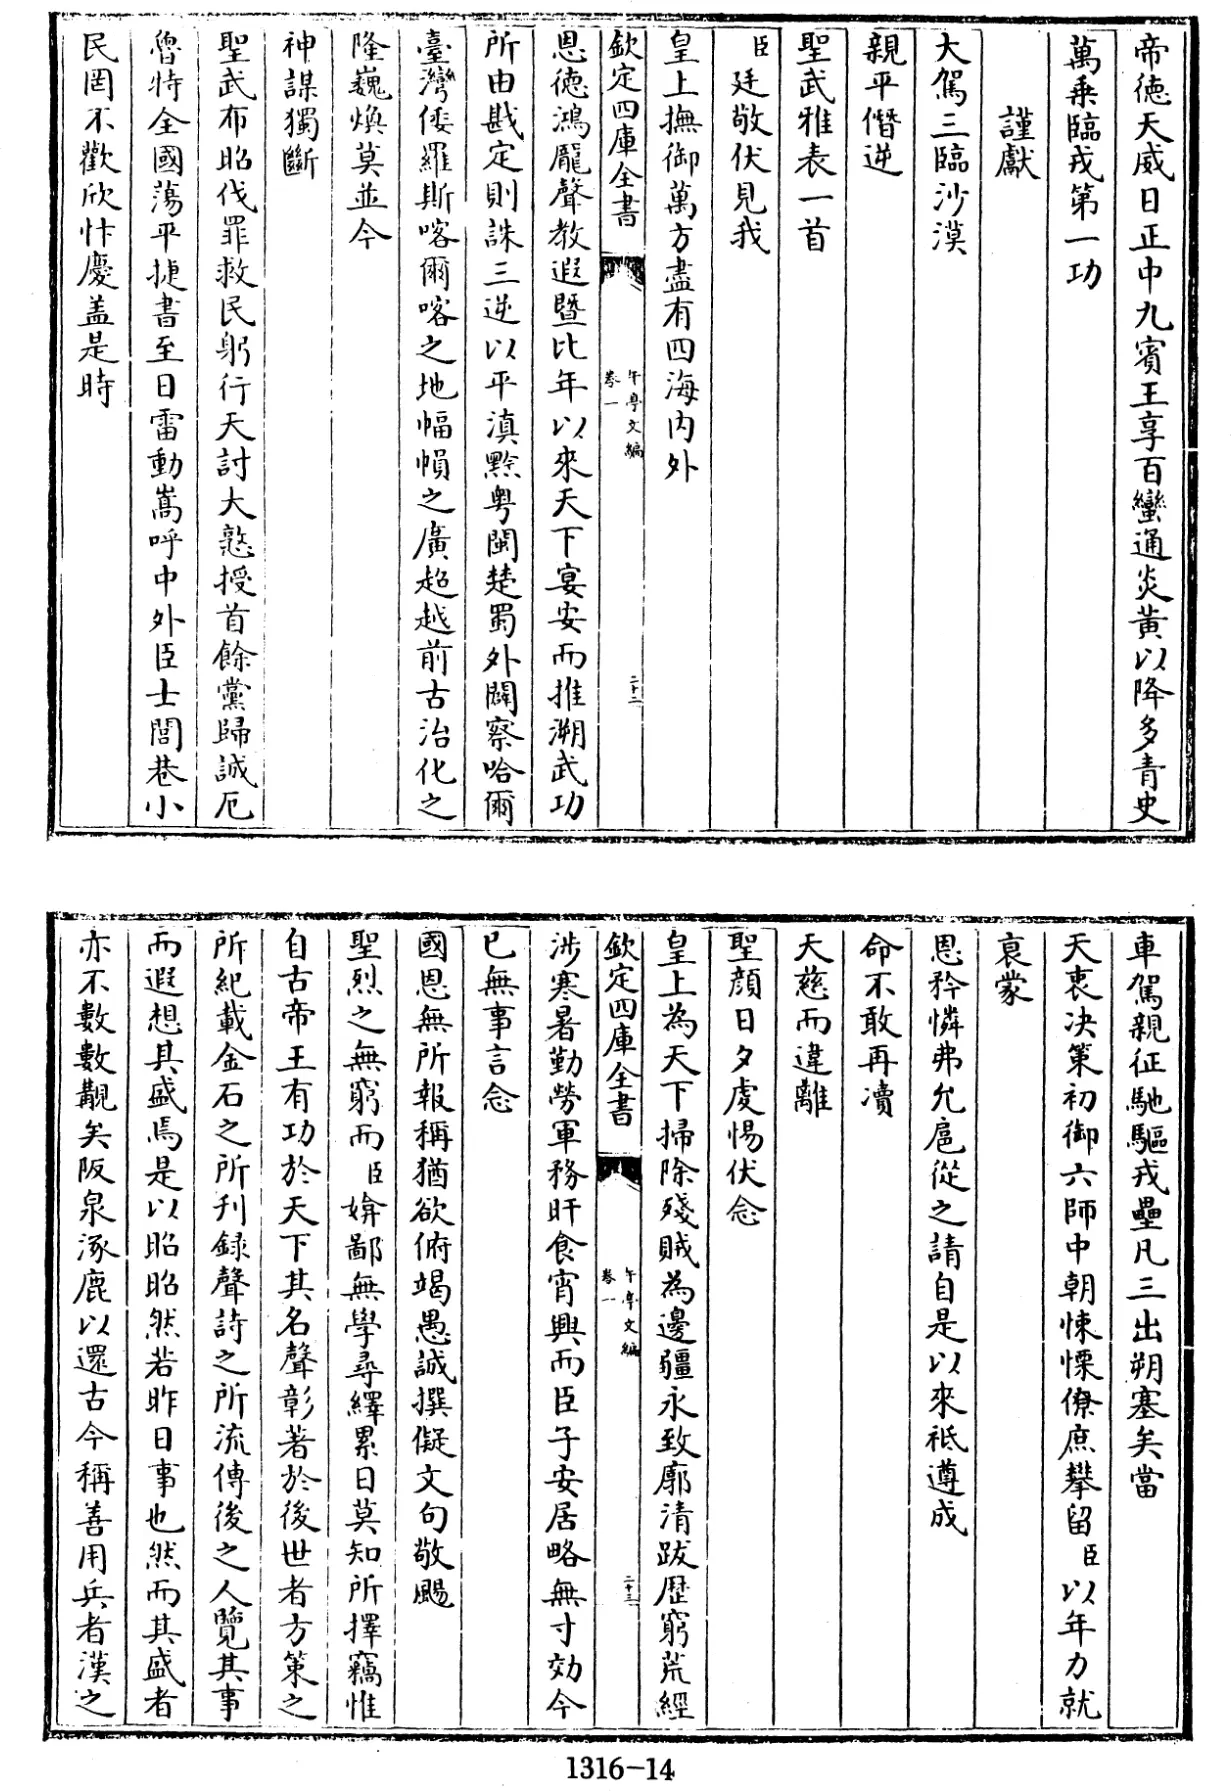 帝德天威日正中九賓王享百蠻通炎黄以降多青史
萬乗臨戎第一功
謹獻
大駕三臨沙漠
親平僭逆
聖武雅表一首
臣廷敬伏見我
皇上撫御萬方盡有四海内外
欽定四庫全書
午亭文編
卷一
二十二
恩德鴻龎聲教遐暨比年以來天下宴安而推溯武功
所由戡定則誅三逆以平滇黔粤閩楚蜀外闢察哈爾
臺灣倭羅斯喀爾喀之地幅幀之廣超越前古治化之
隆巍煥莫並今
神謀獨斷
聖武布昭伐罪救民躬行天討大憝授首餘黨歸誠厄
魯特全國蕩平捷書至日雷動嵩呼中外臣士閭巷小
民罔不歡欣忭慶盖是時
車駕親征馳驅戎壘凡三出朔塞矣當
天衷决策初御六師中朝悚慄僚庶攀留臣以年力就
衰蒙
恩矜憐弗允扈從之請自是以來祗遵成
命不敢再瀆
天慈而違離
聖顔日夕虔惕伏念
皇上為天下掃除殘賊為邊疆永致廓清跋歴窮荒經
欽定四庫全書
午亭文編
卷一
二十三
涉寒暑勤勞軍務旰食宵興而臣子安居略無寸効今
已無事言念
國恩無所報稱猶欲俯竭愚誠撰儗文句敬颺
聖烈之無窮而臣媕鄙無學尋繹累日莫知所擇竊惟
自古帝王有功於天下其名聲彰著於後世者方策之
所紀載金石之所刋録聲詩之所流傳後之人覽其事
而遐想其盛焉是以昭昭然若昨日事也然而其盛者
亦不數數覯矣阪泉涿鹿以還古今稱善用兵者漢之
1316-14